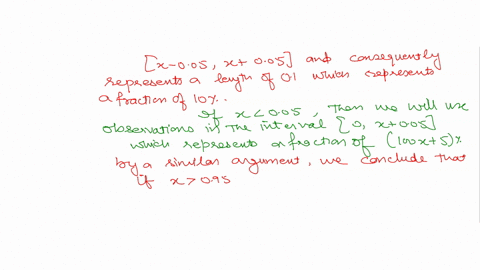 [x-0.05, x+ 0.05] and consequently
represents a length of 0.1 which represents
a fraction of 10%.
If x < 0.05, Then we will use
observations in the interval [0, x+0.05]
which represents a fraction of (100x+5)%
by a similar argument, we conclude that
if x > 0.95